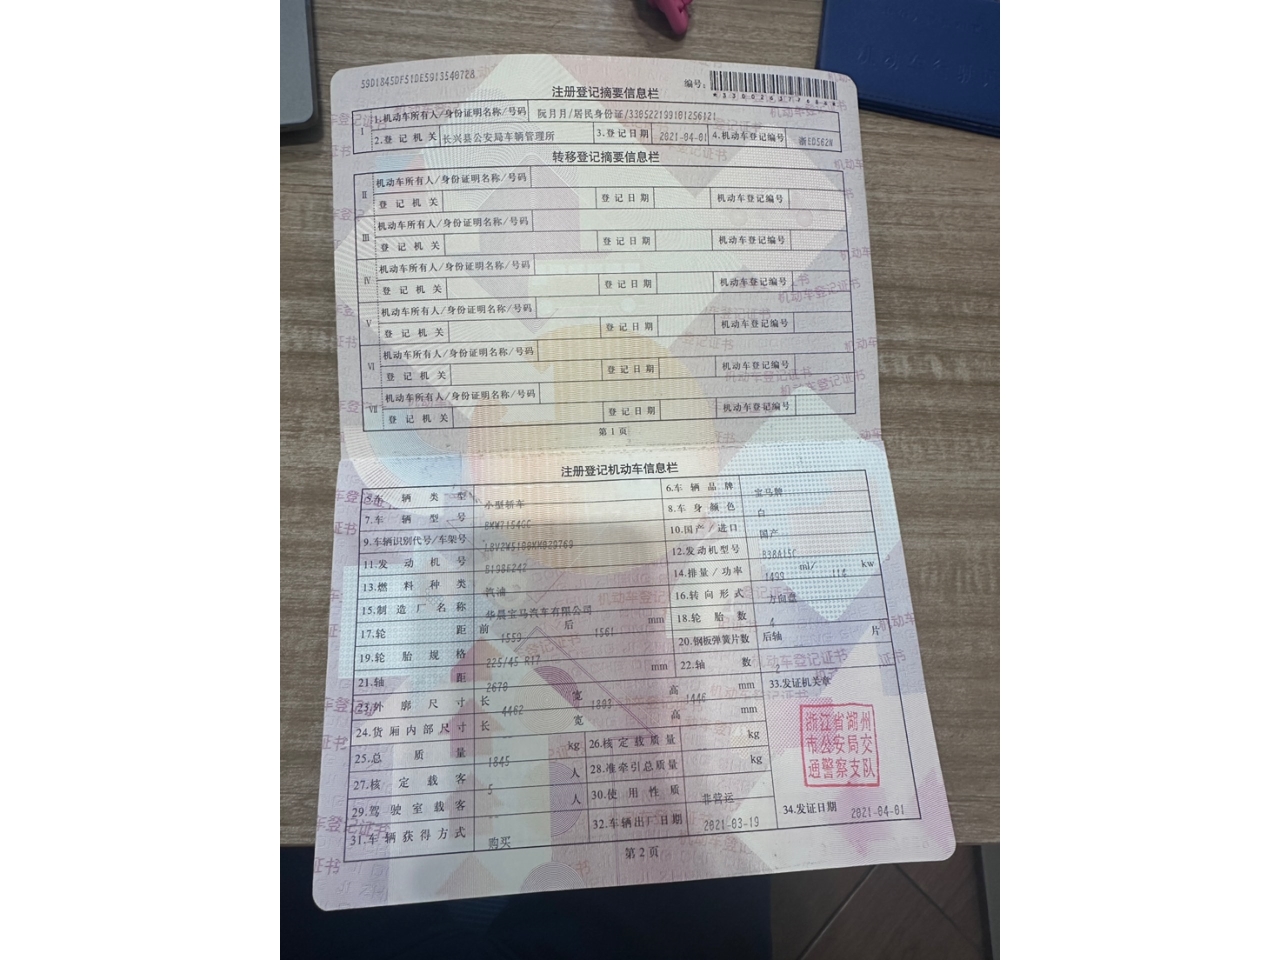 编号:
注册登记摘要信息栏
I 1.机动车所有人/身份证明名称/号码 阮月月/居民身份证/330522199101256121
2.登记机关 长兴县公安局车辆管理所 3.登记日期 2021-04-01 4.机动车登记编号 浙ED562W
转移登记摘要信息栏
II 机动车所有人/身份证明名称/号码
登记机关 登记日期 机动车登记编号
III 机动车所有人/身份证明名称/号码
登记机关 登记日期 机动车登记编号
IV 机动车所有人/身份证明名称/号码
登记机关 登记日期 机动车登记编号
V 机动车所有人/身份证明名称/号码
登记机关 登记日期 机动车登记编号
VI 机动车所有人/身份证明名称/号码
登记机关 登记日期 机动车登记编号
VII 机动车所有人/身份证明名称/号码
登记机关 登记日期 机动车登记编号
第1页
注册登记机动车信息栏
5.车辆类型 小型轿车 6.车辆品牌 宝马牌
7.车辆型号 BMW7154GC 8.车身颜色 白
9.车辆识别代号/车架号 10.国产/进口 国产
11.发动机号 B1986242 12.发动机型号 B38A15C
13.燃料种类 汽油 14.排量/功率 1499 ml/ kw
15.制造厂名称 华晨宝马汽车有限公司 16.转向形式 方向盘
17.轮距 前 1559 后 1561 mm 18.轮胎数 4
19.轮胎规格 225/45 R17 20.钢板弹簧片数 后轴 片
21.轴距 2670 mm 22.轴数 2
23.外廓尺寸 长 4462 宽 1803 高 1446 mm 33.发证机关章
24.货厢内部尺寸 长 宽 高 mm
25.总质量 1845 kg 26.核定载质量 kg
27.核定载客 5 人 28.准牵引总质量 kg
29.驾驶室载客 人 30.使用性质 非营运
31.车辆获得方式 购买 32.车辆出厂日期 2021-03-19 34.发证日期 2021-04-01
浙江省湖州
市公安局交
通警察支队
第2页